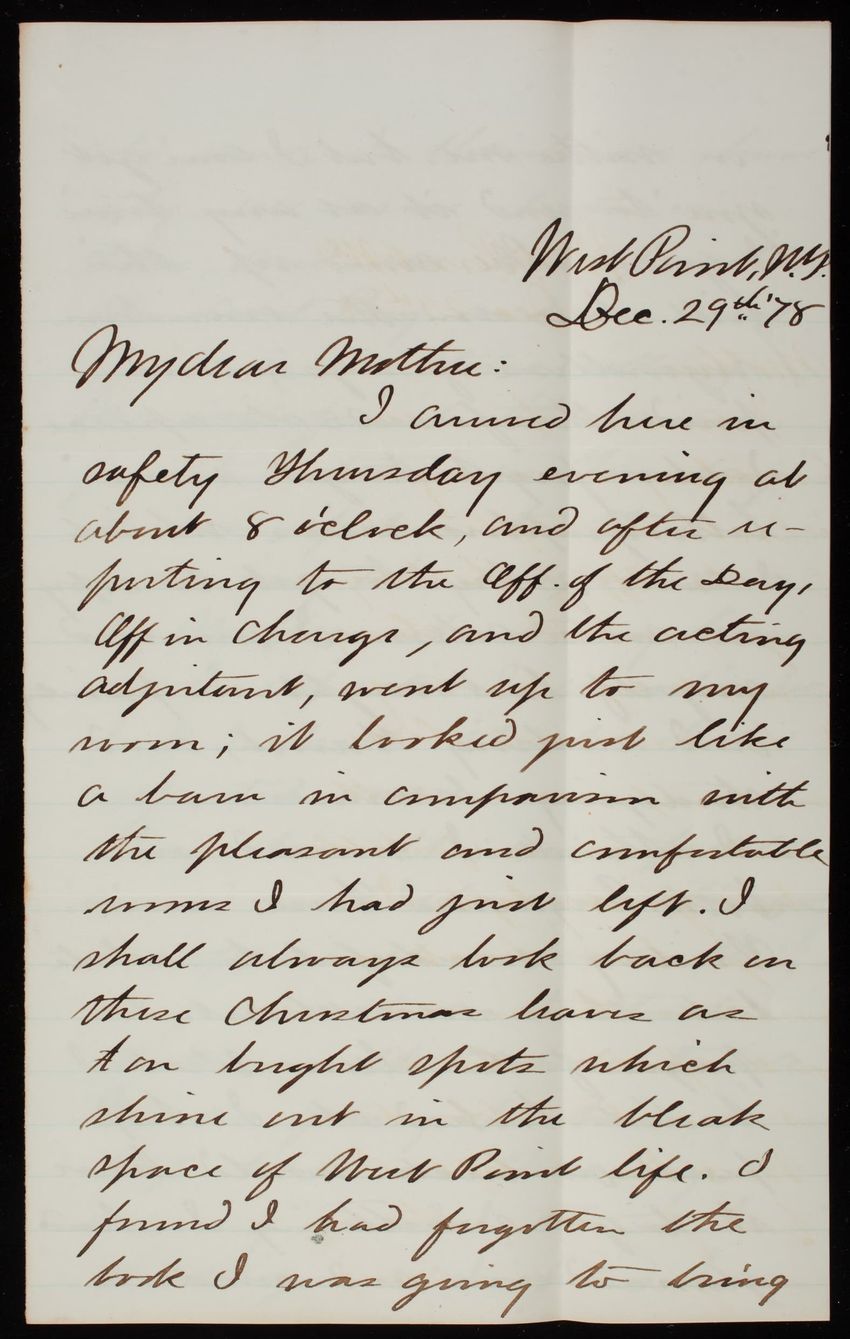 West Point, N.Y.
Dec. 29th '78
My dear Mother:
I arrived here in
safety Thursday evening at
about 8 o'clock, and after re-
porting to the Off. of the Day,
Off in Charge, and the acting
adjutant, went up to my
room; it looked just like
a barn in comparison with
the pleasant and comfortable
rooms I had just left. I
shall always look back on
these Christmas leaves as
on bright spots which
shine out in the bleak
space of West Point life. I
found I had forgotten the
book I was going to bring